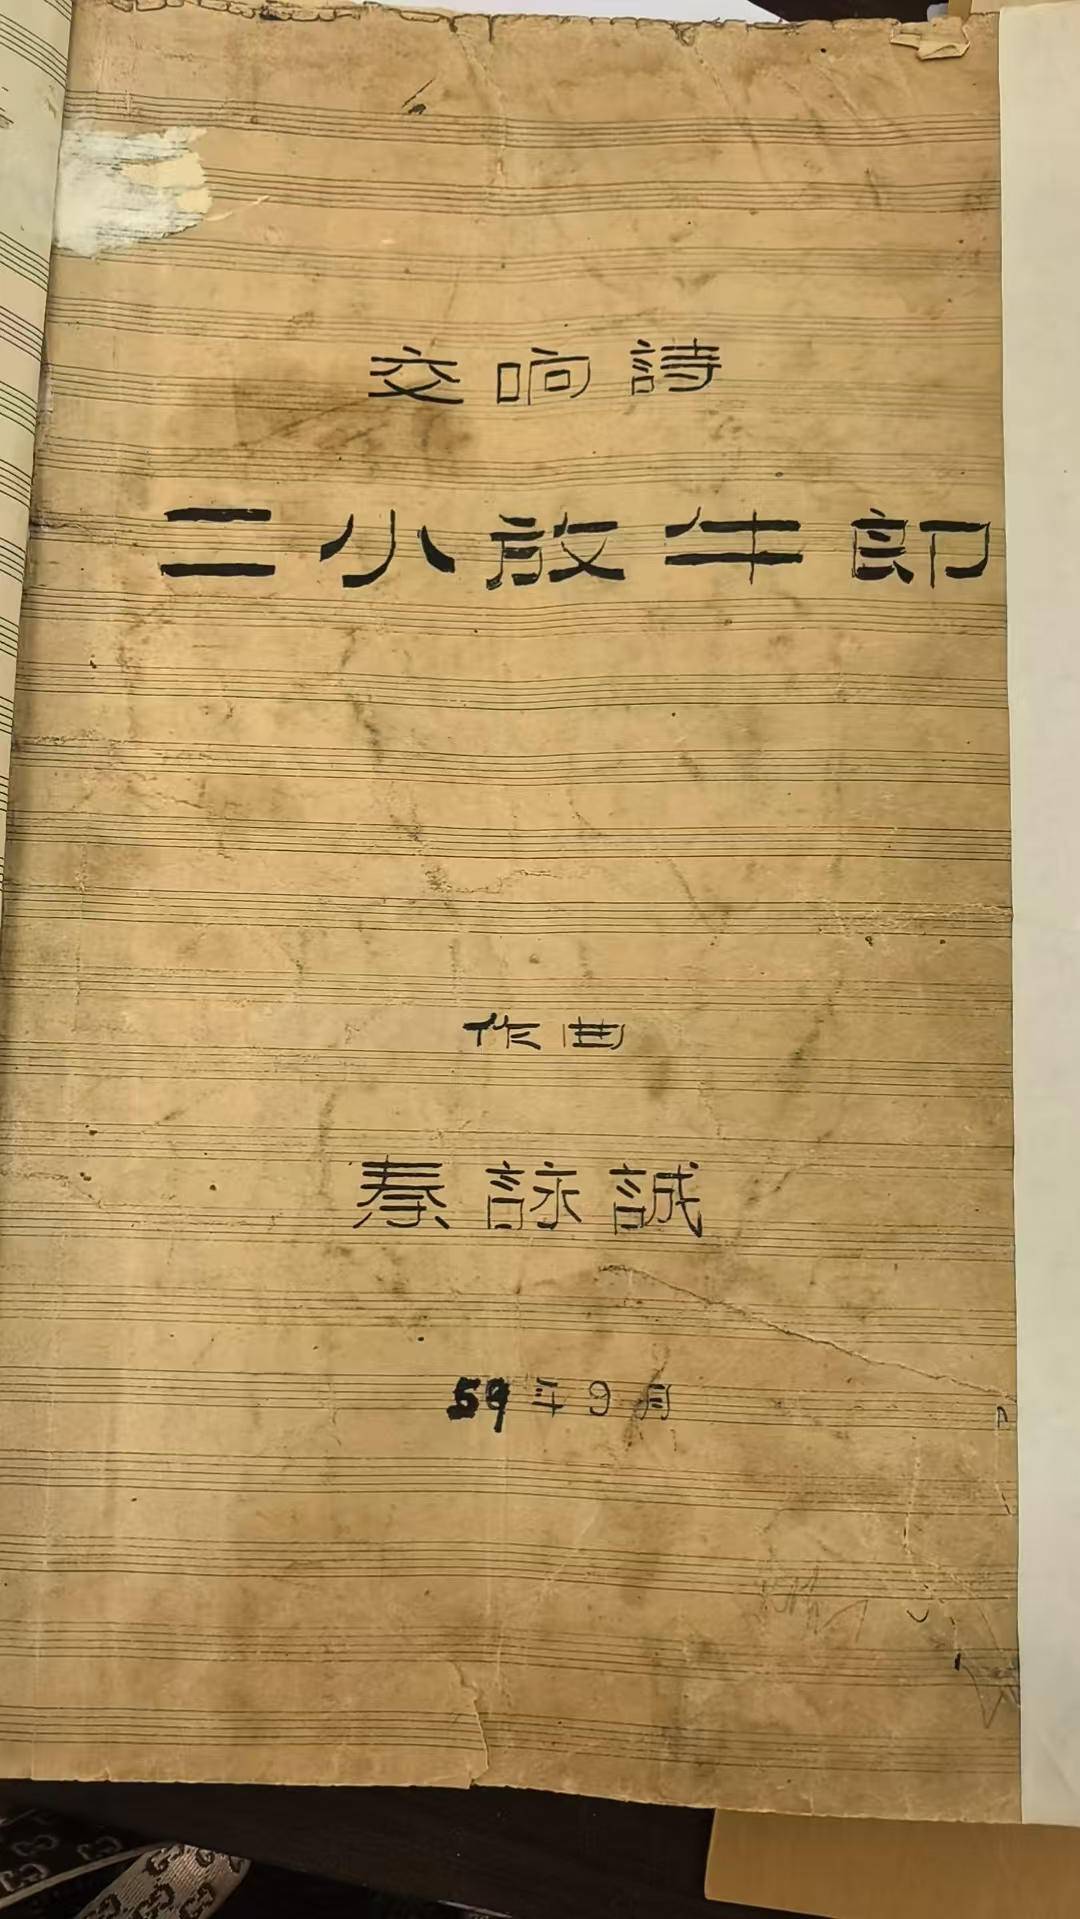 交响詩
二小放牛郎
作曲
秦詠誠
59年9月